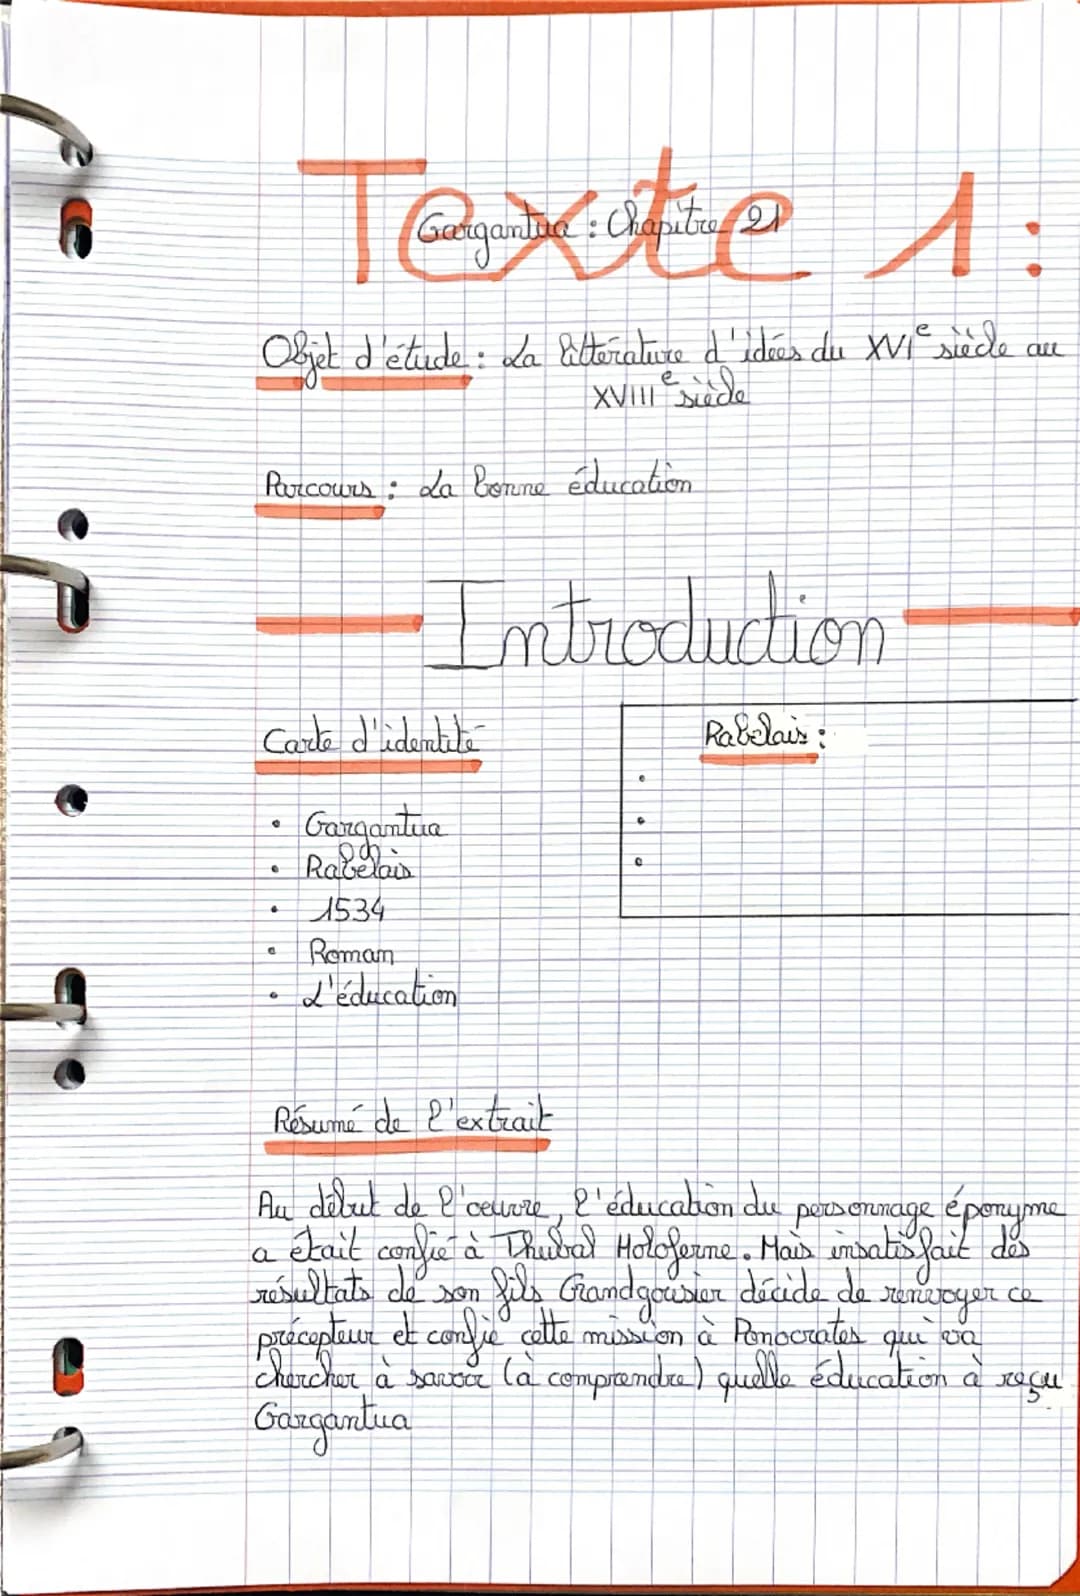 Texte 1:
Gargantua : Chapitre 21
Objet d'étude : La littérature d'idées du XVIe siècle au
XVIIIe siècle
Parcours : La bonne éducation
Introduction
Carte d'identité
• Gargantua
• Rabelais
• 1534
• Roman
• L'éducation
Rabelais :
Résumé de l'extrait
Au début de l'oeuvre, l'éducation du personnage éponyme
a était confié à Thubal Holoferne. Mais insatisfait des
résultats de son fils Grandgousier décide de renvoyer ce
précepteur et confie cette mission à Ponocrates qui va
chercher à savoir (à comprendre) quelle éducation à reçu
Gargantua